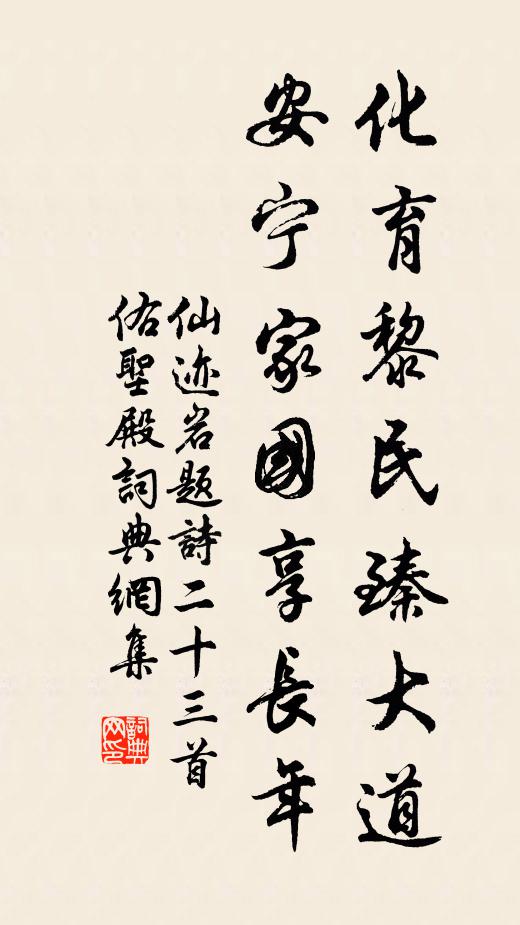 化育黎民臻大道
安宁家國享長年
仙迹岩题詩二十三首
佑聖殿詞典網集
詞典
网印